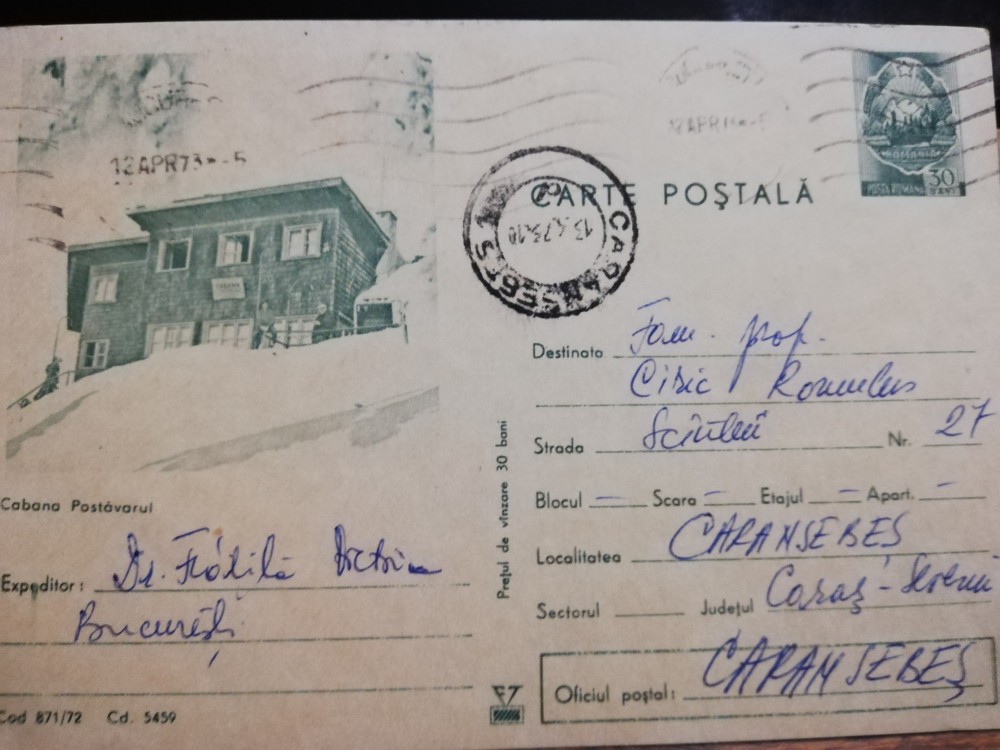 12 APR 73 - 5
12 APR
CARTE POȘTALĂ
CARANSEBEȘ
13.4.73.10
ROMANIA
POSTA ROMANA
30
BANI
CABANA
Destinata Fam. prof.
Ciric Romulus
Strada Scînteii Nr. 27
Blocul — Scara — Etajul — Apart. —
Localitatea CARANSEBEȘ
Sectorul Județul Caraș - Severin
Oficiul poștal: CARANSEBEȘ
Prețul de vînzare 30 bani
Cabana Postăvarul
Expeditor: Dr.
București
Cod 871/72 Cd. 5459